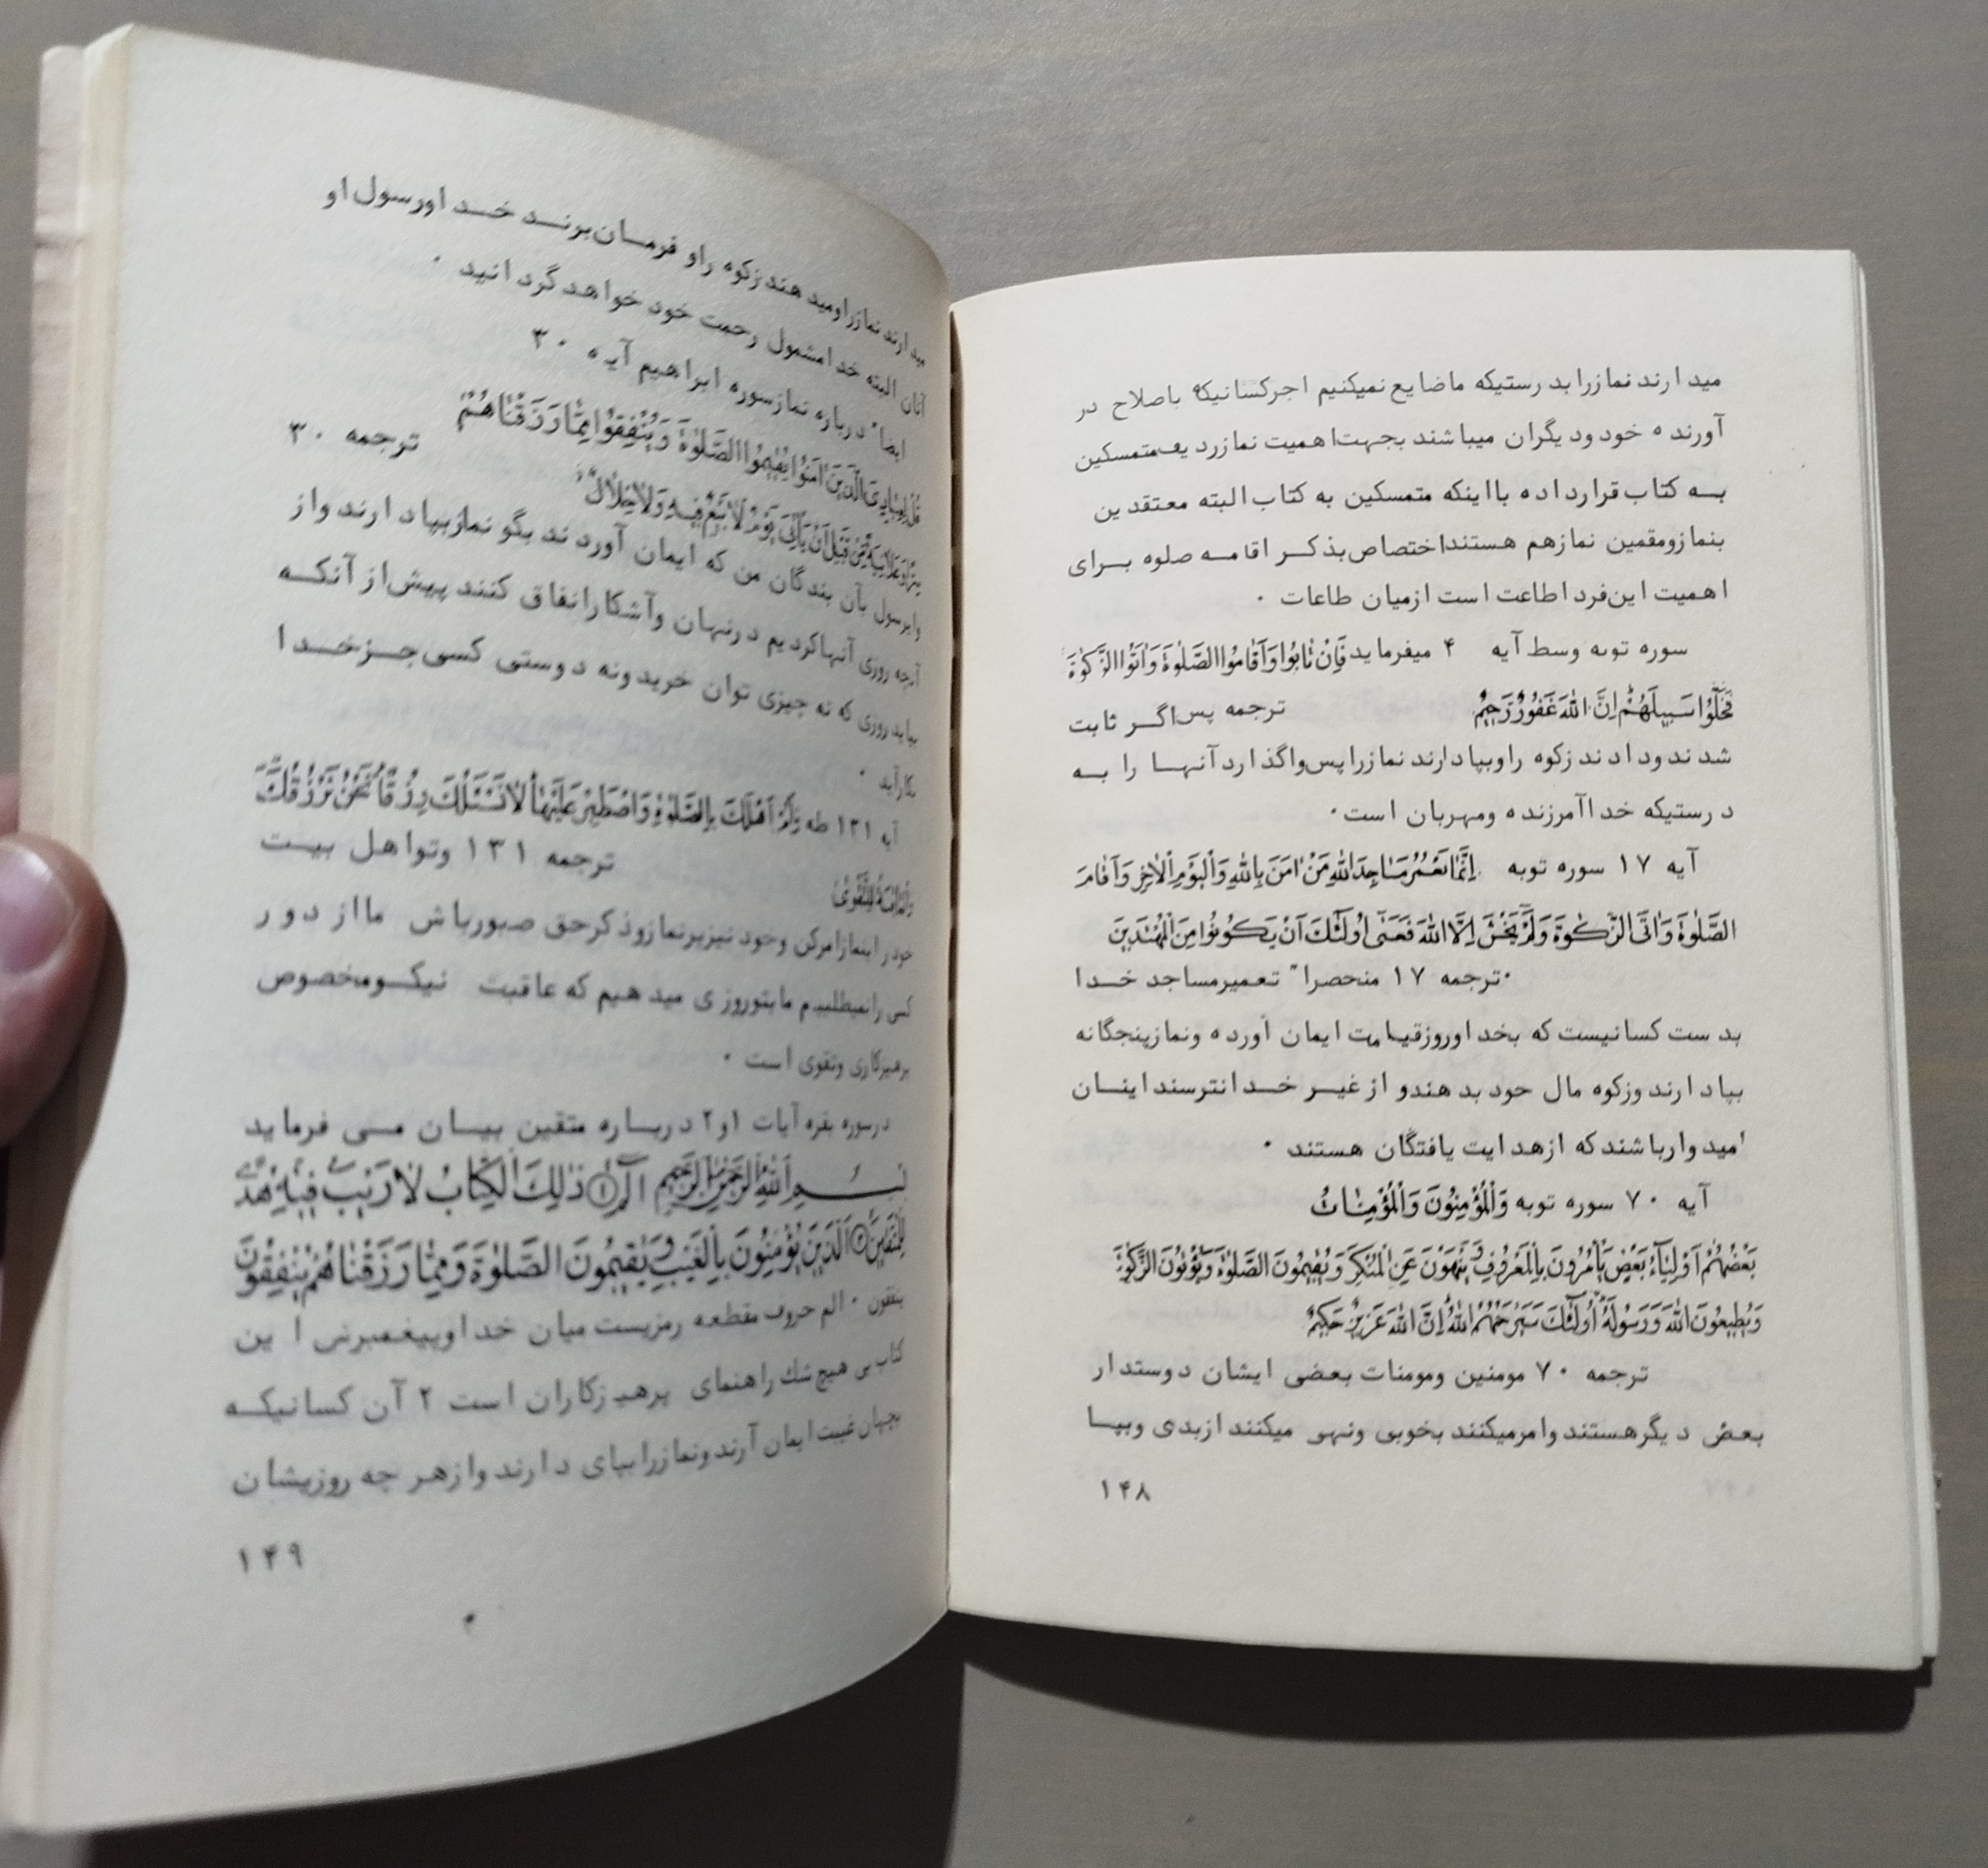 مید ارند نمازرا بد رستیکه ماضایع نمیکنیم اجرکسانیکه باصلاح در
آورند ه خود ود یگران میباشند بجهت اهمیت نمازرد یف متمسکین
بــه کتاب قرارداد ه بااینکه متمسکین به کتاب البته معتقدین
بنمازومقمین نمازهم هستنداختصاص بذکــر اقامــه صلوه بــرای
اهمیت این فرد اطاعت است ازمیان طاعات .
سوره توبه وسط آیه ۴ میفرماید فَاِنْ تٰابُوا وَاَقٰامُوا الصَّلٰوةَ وَاٰتَوُا الزَّکٰوةَ
فَخَلُّوا سَبیلَهُمْ اِنَّ اللّٰهَ غَفُورٌ رَحیمٌ ترجمه پس اگــر ثابت
شد ند ود اد ند زکوه راوبپادارند نمازرا پس واگذ ارد آنهــا را بــه
د رستیکه خد اآمرزند ه ومهربان است .
آیه ۱۷ سوره توبه اِنَّمٰا یَعْمُرُ مَسٰاجِدَ اللّٰهِ مَنْ اٰمَنَ بِاللّٰهِ وَالْیَوْمِ الْاٰخِرِ وَاَقٰامَ
الصَّلٰوةَ وَاٰتَی الزَّکٰوةَ وَلَمْ یَخْشَ اِلَّا اللّٰهَ فَعَسٰی اُولٰئِکَ اَنْ یَکُونُوا مِنَ الْمُهْتَدینَ
.ترجمه ۱۷ منحصراً تعمیرمساجد خــدا
بد ست کسانیست که بخد اوروزقیامت ایمان آورد ه ونمازپنجگانه
بپاد ارند وزکوه مال خود بد هندو ازغیــر خــد انترسند اینــان
امید وارباشند که ازهد ایت یافتگان هستند .
آیه ۷۰ سوره توبه وَالْمُؤْمِنُونَ وَالْمُؤْمِنٰاتُ
بَعْضُهُمْ اَوْلِیٰاءُ بَعْضٍ یَأْمُرُونَ بِالْمَعْرُوفِ وَیَنْهَوْنَ عَنِ الْمُنْکَرِ وَیُقیمُونَ الصَّلٰوةَ وَیُؤْتُونَ الزَّکٰوةَ
وَیُطیعُونَ اللّٰهَ وَرَسُولَهُ اُولٰئِکَ سَیَرْحَمُهُمُ اللّٰهُ اِنَّ اللّٰهَ عَزیزٌ حَکیمٌ
ترجمه ۷۰ مومنین ومومنات بعضی ایشان د وستد ار
بعض د یگرهستند وامرمیکنند بخوبی ونهی میکنند ازبدی وبپــا
۱۴۸
مید ارند نمازراومید هند زکوه راو فرمــان برنــد خــد اورسول او
آنان البته خد امشمول رحمت خود خواهد گرد انید .
ایضاً د رباره نمازسوره ابراهیم آیه ۳۰
قُلْ لِعِبٰادِیَ الَّذینَ اٰمَنُوا یُقیمُوا الصَّلٰوةَ وَیُنْفِقُوا مِمّٰا رَزَقْنٰاهُمْ
سِرًّا وَعَلٰانِیَةً مِنْ قَبْلِ اَنْ یَأْتِیَ یَوْمٌ لٰا بَیْعٌ فیهِ وَلٰا خِلٰالٌ ترجمه ۳۰
وایرسول بآن بندگان من که ایمان آورد ند بگو نمازبپاد ارند واز
آنچه روزی آنهاکرد یم د رنهان وآشکارانفاق کنند پیش از آنکــه
بیاید روزی که نه چیزی توان خرید ونه د وستی کسی جــز خــد ا
بکارآید .
آیه ۱۳۱ طه وَأْمُرْ اَهْلَکَ بِالصَّلٰوةِ وَاصْطَبِرْ عَلَیْهٰا لٰا نَسْئَلُکَ رِزْقًا نَحْنُ نَرْزُقُکَ
وَالْعٰاقِبَةُ لِلتَّقْوٰی ترجمه ۱۳۱ وتواهل بیــت
خود را بنمازامرکن وخود نیزبرنمازوذ کرحق صبورباش مااز د و ر
کسی رانمیطلبیم مابتوروز ی مید هیم که عاقبت نیکــومخصوص
پرهیزکاری وتقوی است .
درسوره بقره آیات ۱و۲ د ربــاره متقین بیــان مــی فرماید
بِسْــمِ اللّٰهِ الرَّحْمٰنِ الرَّحیمِ الٓمٓ (۱) ذٰلِکَ الْکِتٰابُ لٰا رَیْبَ فیهِ هُدًی
لِلْمُتَّقینَ (۲) اَلَّذینَ یُؤْمِنُونَ بِالْغَیْبِ وَیُقیمُونَ الصَّلٰوةَ وَمِمّٰا رَزَقْنٰاهُمْ یُنْفِقُونَ
ینفقون . الم حروف مقطعه رمزیست میان خد اوپیغمبرنی ا ین
کتاب بی هیچ شك راهنمای پرهیزکاران است ۲ آن کسانیکــه
بجهان غیبت ایمان آرند ونمازرابپای د ارند وازهر چه روزیشان
۱۴۹